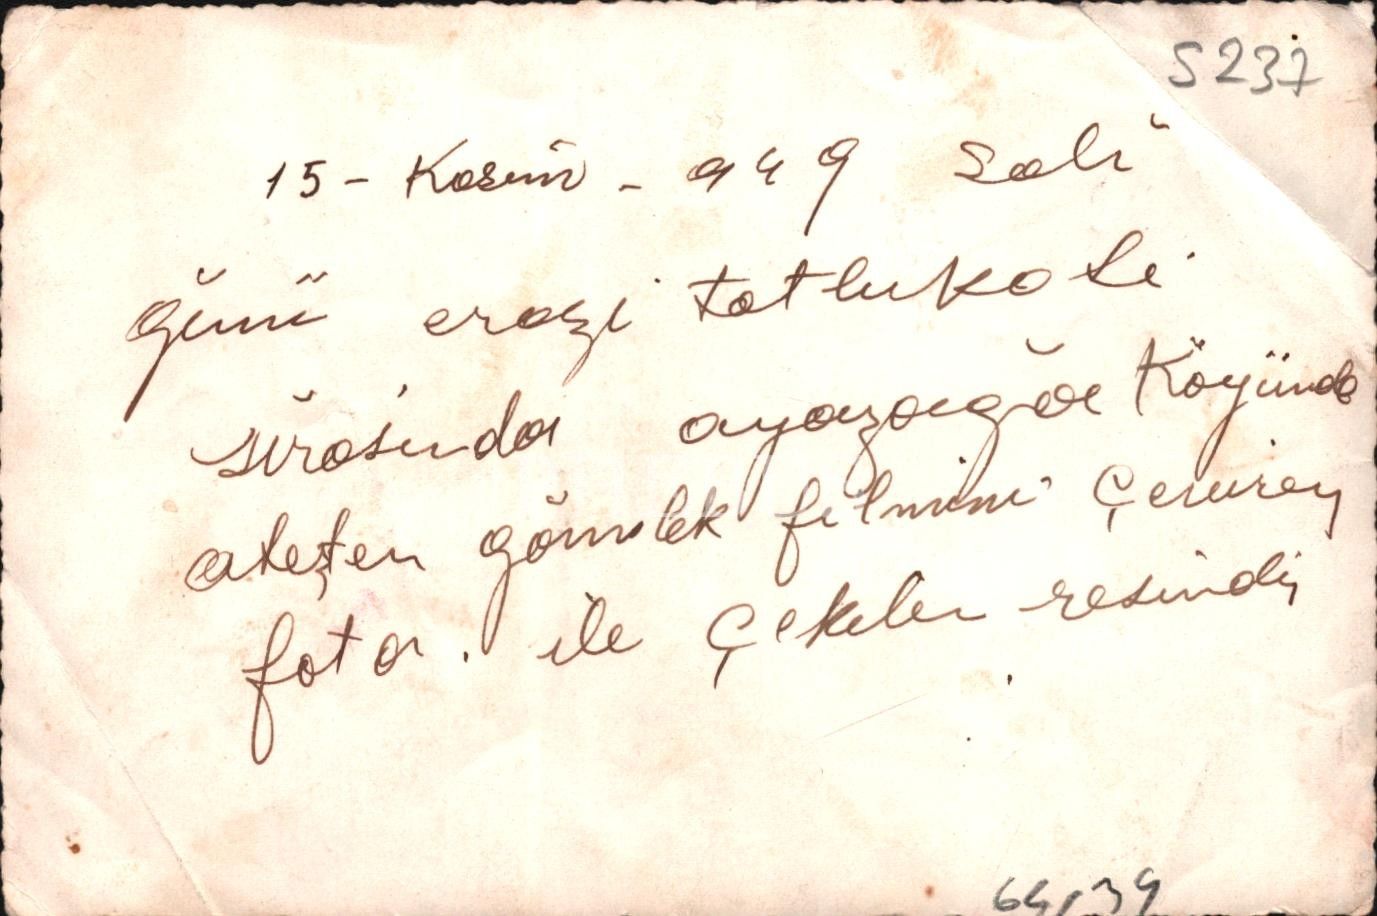 S237
15 - Kasım - 949 Salı
günü arazi tatbikatı
sırasında ayazağa Köyünde
ateşten gömlek filmini Çeviren
foto. ile Çekilen resimdir
64,34